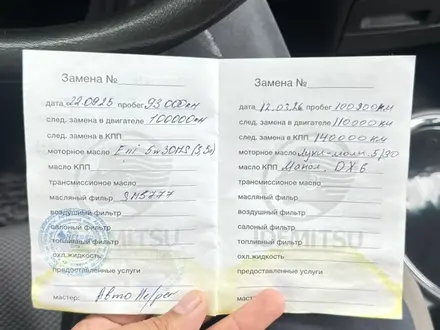 Замена №
дата 22.09.25 пробег 93.000км
след. замена в двигателе 100000км
след. замена в КПП
моторное масло Eni 5w30MS (3,5л)
масло КПП
трансмиссионное масло
масляный фильтр SM5777
воздушный фильтр
салоный фильтр
топливный фильтр
охл.жидкость
предоставленные услуги
мастер: Авто Helper
Замена №
дата 12.03.26 пробег 100900км
след. замена в двигателе 110000км
след. замена в КПП 140000км
моторное масло Луки-моли 5/30
масло КПП Манол. DX6
трансмиссионное масло
масляный фильтр
воздушный фильтр
салоный фильтр
топливный фильтр
охл.жидкость
предоставленные услуги
мастер:
IDEMITSU